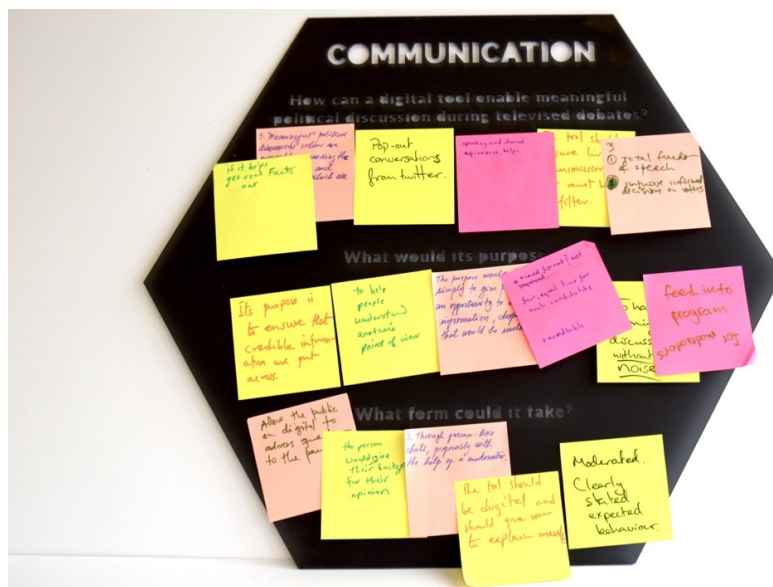 COMMUNICATION
How can a digital tool enable meaningful
political discussion during televised debates?
If it helps
get real facts
out
3. Meaningful political
and
which are
Pop-out
conversations
from twitter.
speaking and shared
experience, helps
tool should
must b
filter.
3
① total freedom
of speech
informed
decision on voters
What would its purpos
Its purpose is
to ensure that
credible inform-
ation are put
across.
to help
people
understand
another's
point of view
The purpose would
simply to give p
an opportunity to
information,
that would be
format? not
fair, equal time for
each candidate
roundtable
discuss
without
NOISE
feed into
program
for moderators
What form could it take?
Allow the public
on digital to
address que
to the pan
the person
would give
their backgr
for their
opinion
2. through forum-like
chats, preferably with
the help of a moderator.
The tool should
be digital and
should give room
to explain oneself
Moderated.
Clearly
stated
expected
behaviour.